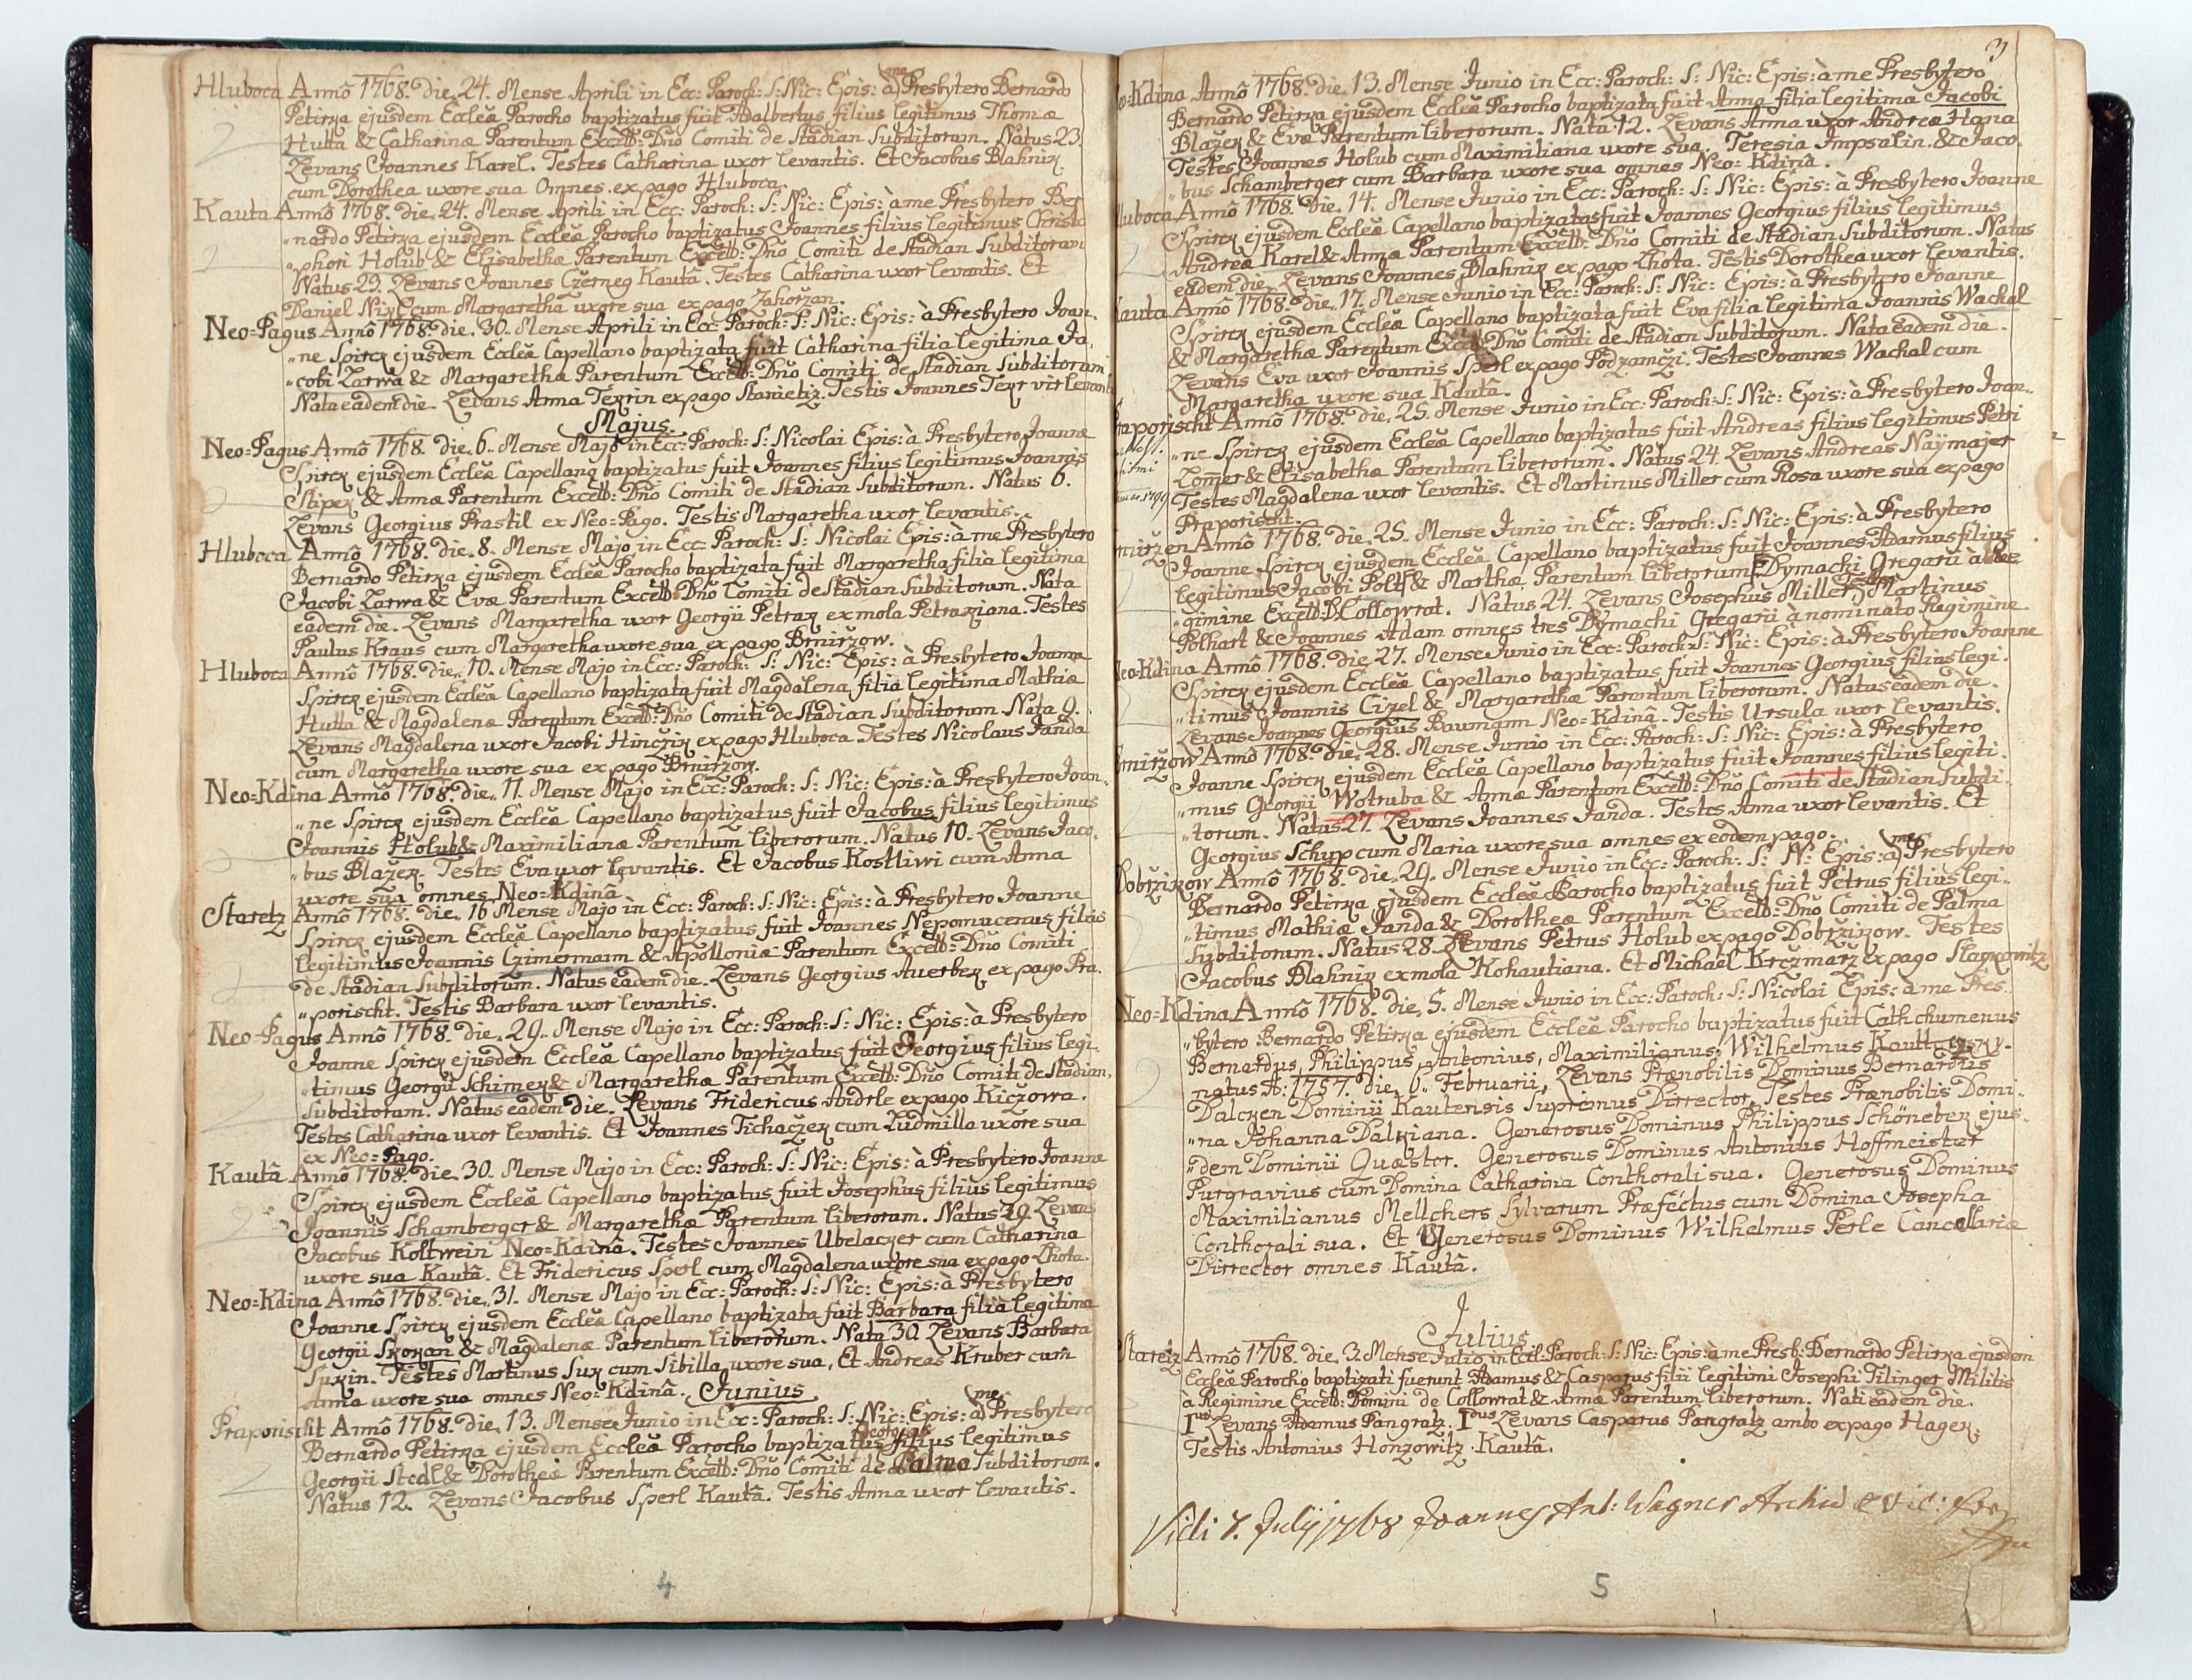 Hluboca Annô 1768. die. 24. Mense Aprili in Ecc: Paroch: S: Nic: Epis: à me Presbytero Bernardo
Petirka ejusdem Eccleæ Parocho baptizatus fuit Adalbertus filius legitimus Thomæ
Hutta & Catharinæ Parentum Excell: Dnō Comiti de Stadian Subditorum. Natus 23.
Levans Joannes Karel. Testes Catharina uxor levantis. Et Jacobus Blahnik
cum Dorothea uxore sua Omnes ex pago Hluboca.
Kauta Annô 1768. die. 24. Mense Aprili in Ecc: Paroch: S: Nic: Epis: à me Presbytero Ber
"nardo Petirka ejusdem Eccleæ Parocho baptizatus Joannes filius legitimus Christo
"phori Holub & Elisabethæ Parentum Excell: Dnō Comiti de Stadian Subditorum
Natus 23. Levans Joannes Czerneg Kautâ. Testes Catharina uxor levantis. Et
Daniel cum Margaretha uxore sua ex pago Zahoržan.
Neo-Pagus Annô 1768. die. 30. Mense Aprili in Ecc: Paroch: S: Nic: Epis: à Presbytero Joan.
"ne Spirek ejusdem Eccleæ Capellano baptizata fuit Catharina filia legitima Ja.
"cobi Larwa & Margaretha Parentum Excell: Dnō Comiti de Stadian Subditorum
Nata eadem die. Levans Anna Texrin ex pago Stanietiz. Testis Joannes Texr vir levant
Majus.
Neo=Pagus Annô 1768. die. 6. Mense Majo in Ecc: Paroch: S: Nicolai Epis: à Presbytero Joanne
Spirek ejusdem Eccleæ Capellano baptizatus fuit Joannes filius legitimus Joannis
Stipek & Annæ Parentum Excell: Dnō Comiti de Stadian Subditorum. Natus 6.
Levans Georgius Prastil ex Neo=Pago. Testis Margaretha uxor levantis.
Hluboca Annô 1768. die. 8. Mense Majo in Ecc: Paroch: S: Nicolai Epis: à me Presbytero
Bernardo Petirka ejusdem Eccleæ Parocho baptizata fuit Margaretha filia legitima
Jacobi Larwa & Evæ Parentum Excell: Dnō Comiti de Stadian Subditorum. Nata
eadem die. Levans Margaretha uxor Georgii Petrak ex mola Petrakiana. Testes
Paulus Kraus cum Margaretha uxore sua ex pago Brniržow.
Hluboca Annô 1768. die. 10. Mense Majo in Ecc: Paroch: S: Nic: Epis: à Presbytero Joanne
Spirek ejusdem Eccleæ Capellano baptizata fuit Magdalena filia legitima Mathiæ
Hutta & Magdalenæ Parentum Excell: Dnō Comiti de Stadian Subditorum Nata 9.
Levans Magdalena uxor Jacobi Hinczik ex pago Hluboca Testes Nicolaus Janda
cum Margaretha uxore sua ex pago Brniržow.
Neo=Kdina Annô 1768. die. 11. Mense Majo in Ecc: Paroch: S: Nic: Epis: à Presbytero Joan.
"ne Spirek ejusdem Eccleæ Capellano baptizatus fuit Jacobus filius legitimus
Joannis Holub & Maximilianæ Parentum liberorum. Natus 10. Levans Jaco.
"bus Blažek. Testes Eva uxor levantis. Et Jacobus Kostliwi cum Anna
uxore sua omnes Neo=Kdinâ.
Staretz Annô 1768. die. 16 Mense Majo in Ecc: Paroch: S: Nic: Epis: à Presbytero Joanne
Spirek ejusdem Eccleæ Capellano baptizatus fuit Joannes Nepomucenus filius
legitimus Joannis Czimermann & Apolloniæ Parentum Excell: Dnō Comiti
de Stadian Subditorum. Natus eadem die. Levans Georgius Auerbek ex pago Pra.
"porischt. Testis Barbara uxor levantis.
Neo-Pagus Annô 1768. die. 29. Mense Majo in Ecc: Paroch: S: Nic: Epis: à Presbytero
Joanne Spirek ejusdem Eccleæ Capellano baptizatus fuit Georgius filius legi.
"timus Georgii Schimek & Margarethæ Parentum Excell: Dnō Comiti de Stadian,
Subditorum. Natus eadem die. Levans Fridericus Widrle ex pago Kiczowa.
Testes Catharina uxor levantis. Et Joannes Tichaczek cum Ludmilla uxore sua
ex Neo=Pago.
Kautâ Annô 1768. die. 30. Mense Majo in Ecc: Paroch: S: Nic: Epis: à Presbytero Joanne
Spirek ejusdem Eccleæ Capellano baptizatus fuit Josephus filius legitimus
Joannis Schamberger & Margarethæ Parentum liberorum. Natus 29. Levans
Jacobus Koltwein Neo=Kdinâ. Testes Joannes Ubelacker cum Catharina
uxore sua Kautâ. Et Fridericus Sperl cum Magdalena uxore sua ex pago Lhota.
Neo=Kdina Annô 1768. die. 31. Mense Majo in Ecc: Paroch: S: Nic: Epis: à Presbytero
Joanne Spirek ejusdem Eccleæ Capellano baptizata fuit Barbara filia legitima
Georgii Skokan & Magdalenæ Parentum liberorum. Nata 30. Levans Barbara
Sukin. Testes Martinus Suk cum Sibilla uxore sua, Et Andreas Kruber cum
Anna uxore sua omnes Neo=Kdinâ. Junius
Praporischt Annô 1768. die. 13. Mense Junio in Ecc: Paroch: S: Nic: Epis: à me Presbytero
Bernardo Petirka ejusdem Eccleæ Parocho baptizatus Georgius filius legitimus
Georgii Stedl & Dorotheæ Parentum Excell: Dnō Comiti de Palma Subditorum.
Natus 12. Levans Jacobus Sperl Kautâ. Testis Anna uxor levantis.
4
3
o=Kdina Annô 1768. die. 13. Mense Junio in Ecc: Paroch: S: Nic: Epis: à me Presbytero
Bernardo Petirka ejusdem Eccleæ Parocho baptizata fuit Anna filia legitima Jacobi
Blažek & Evæ Parentum liberorum. Nata 12. Levans Anna uxor Andreæ Hana
Testes Joannes Holub cum Maximiliana uxore sua. Teresia Impsalin. & Jaco.
"bus Schamberger cum Barbara uxore sua omnes Neo=Kdina.
luboca Annô 1768. die. 14. Mense Junio in Ecc: Paroch: S: Nic: Epis: à Presbytero Joanne
Spirek ejusdem Eccleæ Capellano baptizatus fuit Joannes Georgius filius legitimus
Andreæ Karel & Annæ Parentum Excell: Dnō Comiti de Stadian Subditorum. Natus
eadem die. Levans Joannes Blahnik ex pago Lhota. Testis Dorothea uxor levantis.
auta Annô 1768. die. 17. Mense Junio in Ecc: Paroch: S: Nic: Epis: à Presbytero Joanne
Spirek ejusdem Eccleæ Capellano baptizata fuit Eva filia legitima Joannis Wachal
& Margarethæ Parentum Excell: Dnō Comiti de Stadian Subditorum. Nata eadem die.
Levans Eva uxor Joannis Sperl ex pago Podzamczi. Testes Joannes Wachal cum
Margaretha uxore sua Kautâ.
raporischt Annô 1768. die. 25. Mense Junio in Ecc: Paroch: S: Nic: Epis: à Presbytero Joan.
"ne Spirek ejusdem Eccleæ Capellano baptizatus fuit Andreas filius legitimus Petri
Lom̄er & Elisabethæ Parentum liberorum. Natus 24. Levans Andreas Naÿmajer
1799 Testes Magdalena uxor levantis. Et Martinus Miller cum Rosa uxore sua ex pago
Praporischt.
miržen Annô 1768. die. 25. Mense Junio in Ecc: Paroch: S: Nic: Epis: à Presbytero
Joanne Spirek ejusdem Eccleæ Capellano baptizatus fuit Joannes Adamus filius
legitimus Jacobi Poltz & Marthæ Parentum liberorum Dymachi Gregarii à Re
"gimine Excell: D: Collowrat. Natus 24. Levans Josephus Miller, Testes Martinus
Polhart & Joannes Adam omnes tres Dymachi Gregarii à nominato Regimine.
eo=Kdina Annô 1768. die. 27. Mense Junio in Ecc: Paroch: S: Nic: Epis: à Presbytero Joanne
Spirek ejusdem Eccleæ Capellano baptizatus fuit Joannes Georgius filius legi.
"timus Joannis Cizel & Margarethæ Parentum liberorum. Natus eadem die.
Levans Joannes Georgius Baumann Neo=Kdinâ. Testis Ursula uxor levantis.
rniržow Annô 1768. die. 28. Mense Junio in Ecc: Paroch: S: Nic: Epis: à Presbytero
Joanne Spirek ejusdem Eccleæ Capellano baptizatus fuit Joannes filius legiti.
"mus Georgii Wotruba & Annæ Parentum Excell: Dnō Comiti de Stadian Subdi.
"torum. Natus 27. Levans Joannes Janda. Testes Anna uxor levantis. Et
Georgius Schyp cum Maria uxore sua omnes ex eodem pago.
Dobržikow Annô 1768. die. 29. Mense Junio in Ecc: Paroch: S: N: Epis: à me Presbytero
Bernardo Petirka ejusdem Eccleæ Parocho baptizatus fuit Petrus filius legi.
"timus Mathiæ Janda & Dorotheæ Parentum Excell: Dnō Comiti de Palma
Subditorum. Natus 28. Levans Petrus Holub ex pago Dobržikow. Testes
Jacobus Blahnik ex mola Kohautiana. Et Michael Krczmarž ex pago Slawikowitz
Neo=Kdina Annô 1768. die. 5. Mense Junio in Ecc: Paroch: S: Nicolai Epis: à me Pres.
"bytero Bernardo Petirka ejusdem Eccleæ Parocho baptizatus fuit Cathchumenus
Bernardus, Philippus, Antonius, Maximilianus, Wilhelmus Kautt
natus A: 1757. die. 6. Februarii, Levans Prænobilis Dominus Bernardus
Dalcken Dominii Kautensis Supremus Dirrector. Testes Prænobilis Domi.
"na Johanna Dalkiana. Generosus Dominus Philippus Schöneber ejus.
"dem Dominii Quæstor. Generosus Dominus Antonius Hoffmeister
Purgravius cum Domina Catharina Conthorali sua. Generosus Dominus
Maximilianus Mellchers Sylvarum Præfectus cum Domina Josepha
Conthorali sua. Et Generosus Dominus Wilhelmus Perle Cancellariæ
Dirrector omnes Kautâ.
Julius
Staretz Annô 1768. die. 3. Mense Julio in Eccl: Paroch: S: Nic: Epis: à me Presb: Bernardo Petirka ejusdem
Eccleæ Parocho baptizati fuerunt Adamus & Casparus filii legitimi Josephi Tilinger Militis
à Regimine Excell: Domini de Collowrat & Annæ Parentum liberorum. Nati eadem die.
Levans Adamus Pangratz. Levans Casparus Pangratz ambo ex pago Hagek.
Testis Antonius Honzowitz Kautâ.
Vidi 7. Julij 1768 Joannes Ant: Wagner
5